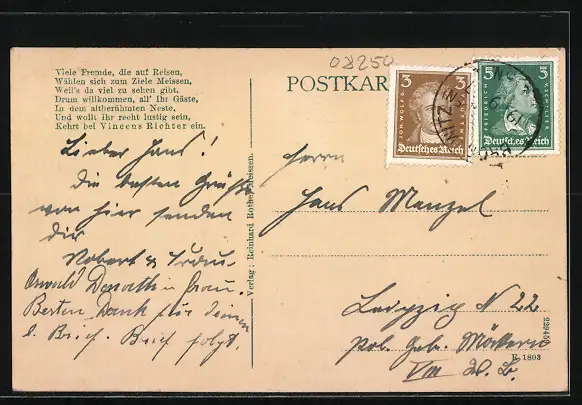 08250
Viele Fremde, die auf Reisen,
Wählen sich zum Ziele Meissen,
Weil's da viel zu sehen gibt.
Drum willkommen, all' Ihr Gäste,
In dem altberühmten Neste,
Und wollt Ihr recht lustig sein,
Kehrt bei Vincenz Richter ein.
POSTKAR
3 3
JOH. WOLFG. GOETHE
Deutsches Reich
5 5
FRIEDRICH V. SCHILLER
Deutsches Reich
Lieber Hans!
Die besten Grüße
von hier senden
dir
Robert & Frau
Oswald Donath u. Frau.
Besten Dank für deinen
l. Brief. Brief folgt.
Verlag: Reinhard Rothe, Meissen.
Herrn
Hans Menzel
Leipzig N 22
Möckern
229405
R. 1803